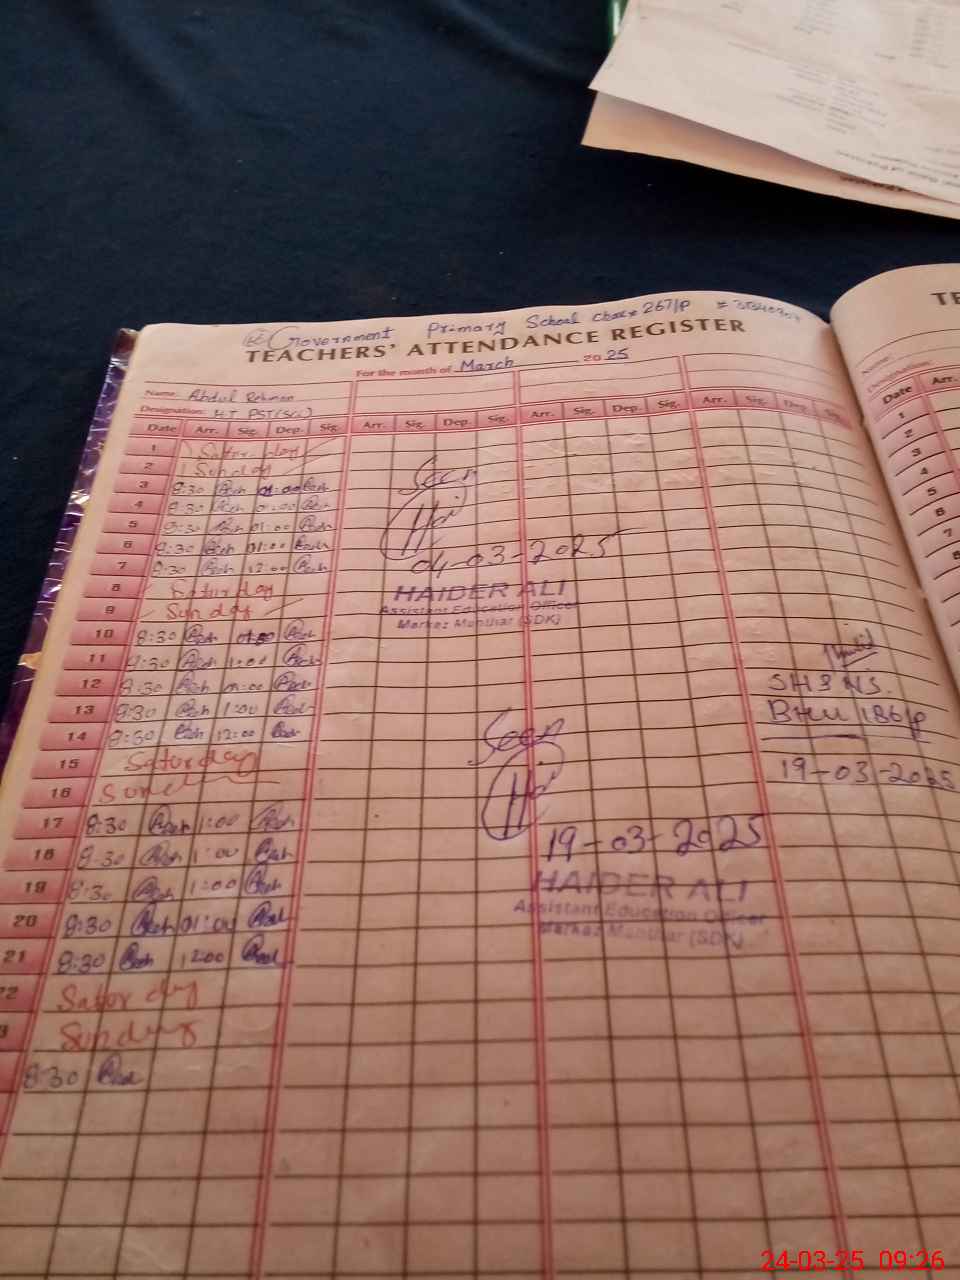 Government Primary School Chak # 267/P #
TEACHERS' ATTENDANCE REGISTER
For the month of March 2025
Name: Abdul Rehman
Designation: HT PST(SG)
Date Arr. Sig. Dep. Sig. Arr. Sig. Dep. Sig. Arr. Sig. Dep. Sig. Arr. Sig. Dep. Sig.
1 Saturday
2 Sunday
3 8:30 01:00
4 8:30 01:00
5 8:30 01:00
6 8:30 01:00
7 8:30 12:00
8 Saturday
9 Sunday
10 8:30
11 8:30 1:00
12 8:30 01:00
13 8:30 1:00
14 8:30 12:00
15 Saturday
16 Sunday
17 8:30 1:00
18 8:30 1:00
19 8:30 1:00
20 8:30 01:00
21 8:30 12:00
22 Saturday
Sunday
8:30
Seen
04-03-2025
HAIDER ALI
Assistant Education Officer
Markaz Manthar (SDK)
Seen
19-03-2025
HAIDER ALI
Assistant Education Officer
Markaz Manthar (SDK)
SH&NS.
BHU 186/P
19-03-2025
TE
Name:
Designation:
Date Arr.
1
2
3
4
5
6
7
8
24-03-25 09:26